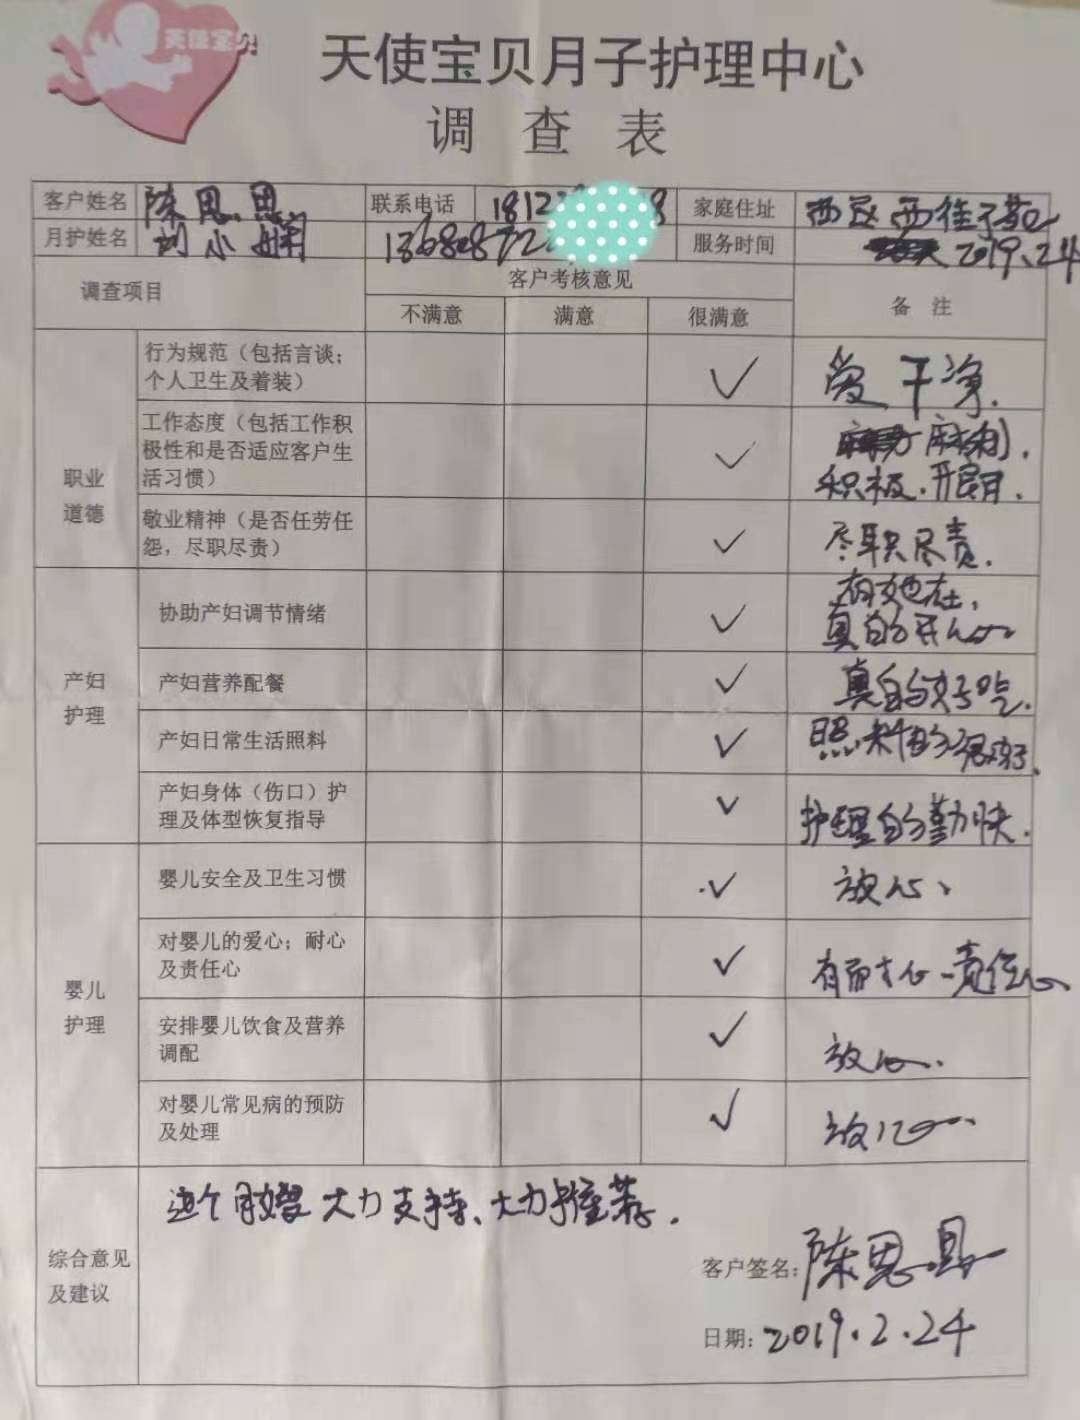 天使宝贝
天使宝贝月子护理中心
调查表
客户姓名 陈思思 联系电话 1812 8 家庭住址 西区
月护姓名 刘小娟 136808722 服务时间 2019.24
调查项目 客户考核意见 备 注
不满意 满意 很满意
职业
道德
行为规范（包括言谈；
个人卫生及着装）
✓ 爱干净.
工作态度（包括工作积
极性和是否适应客户生
活习惯）
✓ 麻利.
积极.开朗.
敬业精神（是否任劳任
怨，尽职尽责）
✓ 尽职尽责.
产妇
护理
协助产妇调节情绪 ✓ 有她在，
真的开心
产妇营养配餐 ✓ 真的好吃.
产妇日常生活照料 ✓ 照料的很好.
产妇身体（伤口）护
理及体型恢复指导
✓ 护理的勤快.
婴儿
护理
婴儿安全及卫生习惯 ✓ 放心、
对婴儿的爱心；耐心
及责任心
✓ 有耐心、责任心
安排婴儿饮食及营养
调配
✓ 放心.
对婴儿常见病的预防
及处理
✓ 放心.
综合意见
及建议
这个月嫂大力支持、大力推荐.
客户签名：陈思思
日期：2019.2.24